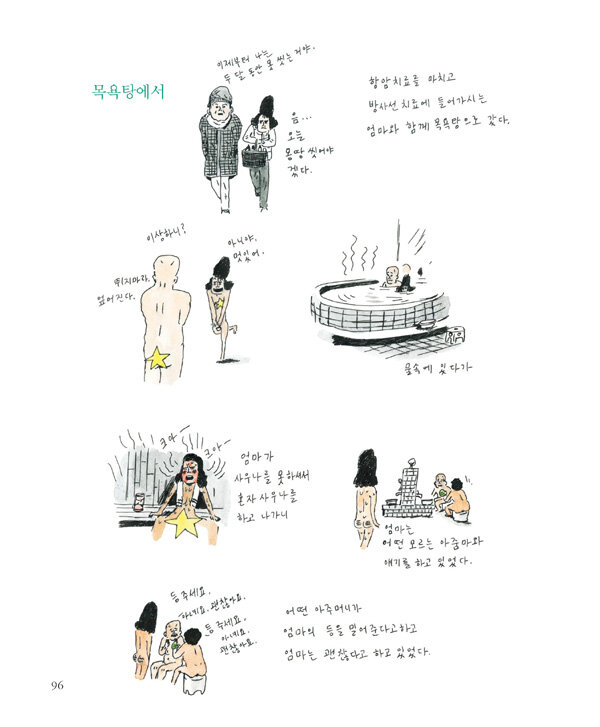 목욕탕에서
이제부터 나는
두 달 동안 못 씻는 거야.
음...
오늘
몽땅 씻어야
겠다.
항암치료를 마치고
방사선 치료에 들어가시는
엄마와 함께 목욕탕으로 갔다.
이상하니?
뛰지마라,
엎어진다.
아니야,
멋있어.
물속에 있다가
크아-
크아-
엄마가
사우나를 못하셔서
혼자 사우나를
하고 나가니
엄마는
어떤 모르는 아줌마와
얘기를 하고 있었다.
등 주세요.
아니요. 괜찮아요.
등 주세요.
아니요.
괜찮아요.
어떤 아주머니가
엄마의 등을 밀어준다고하고
엄마는 괜찮다고 하고 있었다.
96